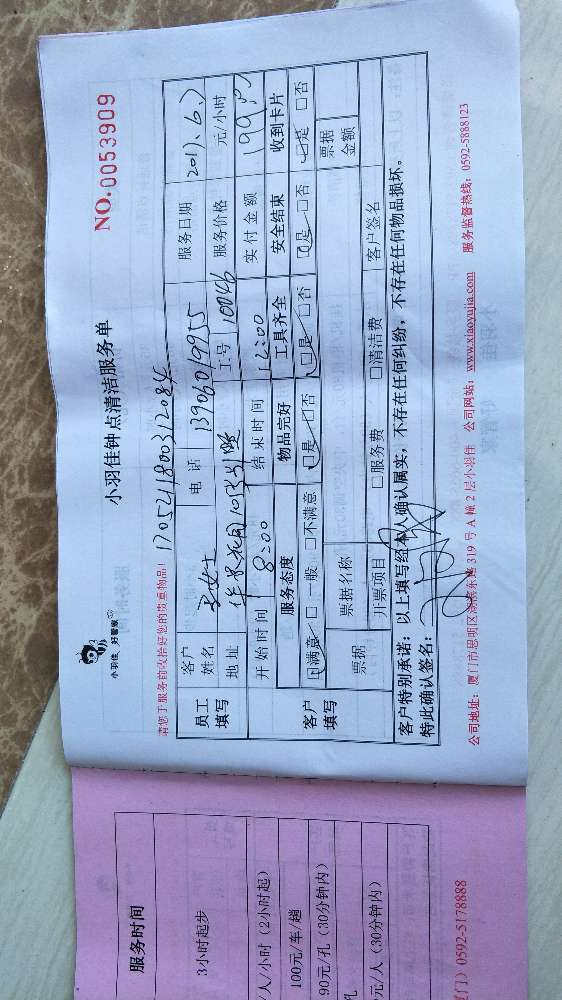 小羽佳 好管家
小羽佳钟点清洁服务单
NO.0053909
请您于服务前收拾好您的贵重物品！
170521800312084
员工填写
客户姓名
女士
电话
13906019955
服务日期
2017.6.
地址
工号
10046
服务价格
元/小时
开始时间
8:00
结束时间
12:00
实付金额
199.
客户填写
服务态度
物品完好
工具齐全
安全结束
收到卡片
满意 一般 不满意
是 否
是 否
是 否
是 否
票据
票据名称
票据金额
开票项目
服务费 清洁费
客户签名
客户特别承诺：以上填写经本人确认属实，不存在任何纠纷，不存在任何物品损坏。
特此确认签名：
公司地址：厦门市思明区湖滨东路319号A幢2层小羽佳 公司网站：www.xiaoyujia.com 服务监督热线：0592-5888123
服务时间
3小时起步
/人/小时（2小时起）
100元/车/趟
90元/孔（30分钟内）
孔
元/人（30分钟内）
门）0592-5178888